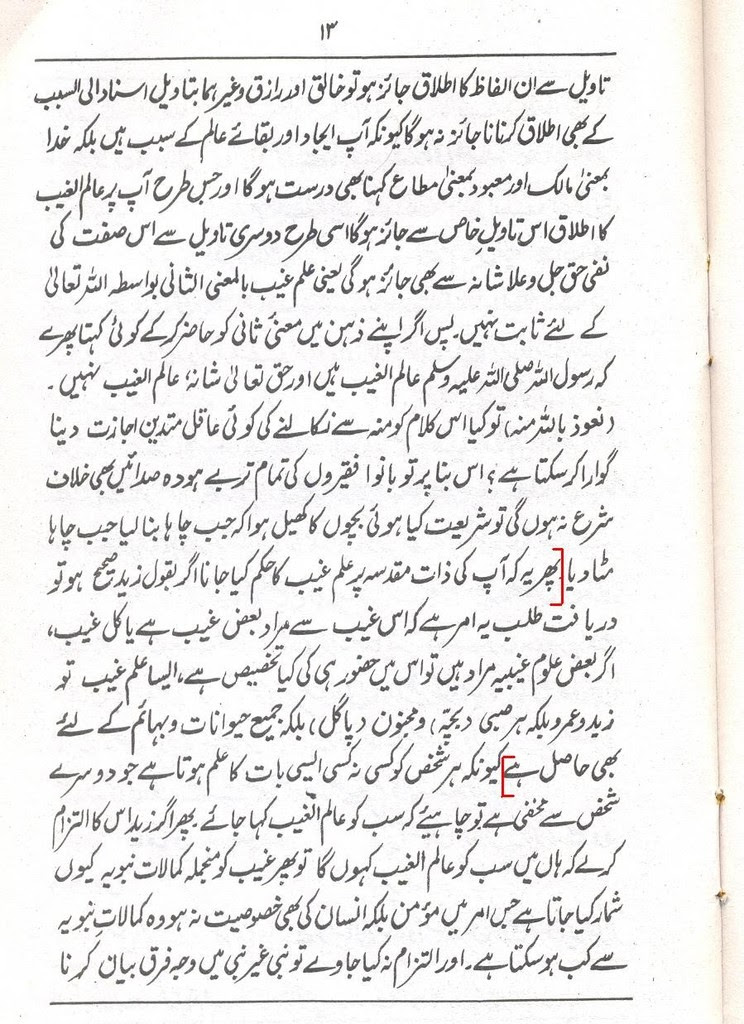 ۱۳
تاویل سے ان الفاظ کا اطلاق جائز ہو تو خالق اور رازق وغیرہما بتاویل اسناد الی السبب
کے بھی اطلاق کرنا نا جائز نہ ہو گا کیونکہ آپ ایجاد اور بقائے عالم کے سبب ہیں بلکہ خدا
بمعنیٰ مالک اور معبود بمعنیٰ مطاع کہنا بھی درست ہو گا اور جس طرح آپ پر عالم الغیب
کا اطلاق اس تاویلِ خاص سے جائز ہو گا اسی طرح دوسری تاویل سے اس صفت کی
نفی حق جل وعلا شانہ سے بھی جائز ہو گی یعنی علم غیب بالمعنی الثانی بواسطہ اللہ تعالیٰ
کے لئے ثابت نہیں۔ پس اگر اپنے ذہن میں معنیٔ ثانی کو حاضر کر کے کوئی کہتا پھرے
کہ رسول اللہ صلی اللہ علیہ وسلم عالم الغیب ہیں اور حق تعالیٰ شانہٗ عالم الغیب نہیں۔
(نعوذ باللہ منہ) تو کیا اس کلام کو منہ سے نکالنے کی کوئی عاقل متدین اجازت دینا
گوارا کر سکتا ہے؟ اس بنا پر تو بانوا فقیروں کی تمام تر بے ہودہ صدائیں بھی خلاف
شرع نہ ہوں گی تو شریعت کیا ہوئی بچوں کا کھیل ہوا کہ جب چاہا بنا لیا جب چاہا
مٹا دیا پھر یہ کہ آپ کی ذات مقدسہ پر علم غیب کا حکم کیا جانا اگر بقول زید صحیح ہو تو
دریافت طلب یہ امر ہے کہ اس غیب سے مراد بعض غیب ہے یا کل غیب،
اگر بعض علوم غیبیہ مراد ہیں تو اس میں حضور ہی کی کیا تخصیص ہے، ایسا علم غیب تو
زید و عمرو بلکہ ہر صبی (بچہ) و مجنون (پاگل) بلکہ جمیع حیوانات و بہائم کے لئے
بھی حاصل ہے کیونکہ ہر شخص کو کسی نہ کسی ایسی بات کا علم ہوتا ہے جو دوسرے
شخص سے مخفی ہے تو چاہیئے کہ سب کو عالم الغیب کہا جائے۔ پھر اگر زید اس کا التزام
کر لے کہ ہاں میں سب کو عالم الغیب کہوں گا تو پھر غیب کو منجملہ کمالات نبویہ کیوں
شمار کیا جاتا ہے جس امر میں مؤمن بلکہ انسان کی بھی خصوصیت نہ ہو وہ کمالاتِ نبویہ
سے کب ہو سکتا ہے۔ اور التزام نہ کیا جاوے تو نبی غیر نبی میں وجہ فرق بیان کرنا